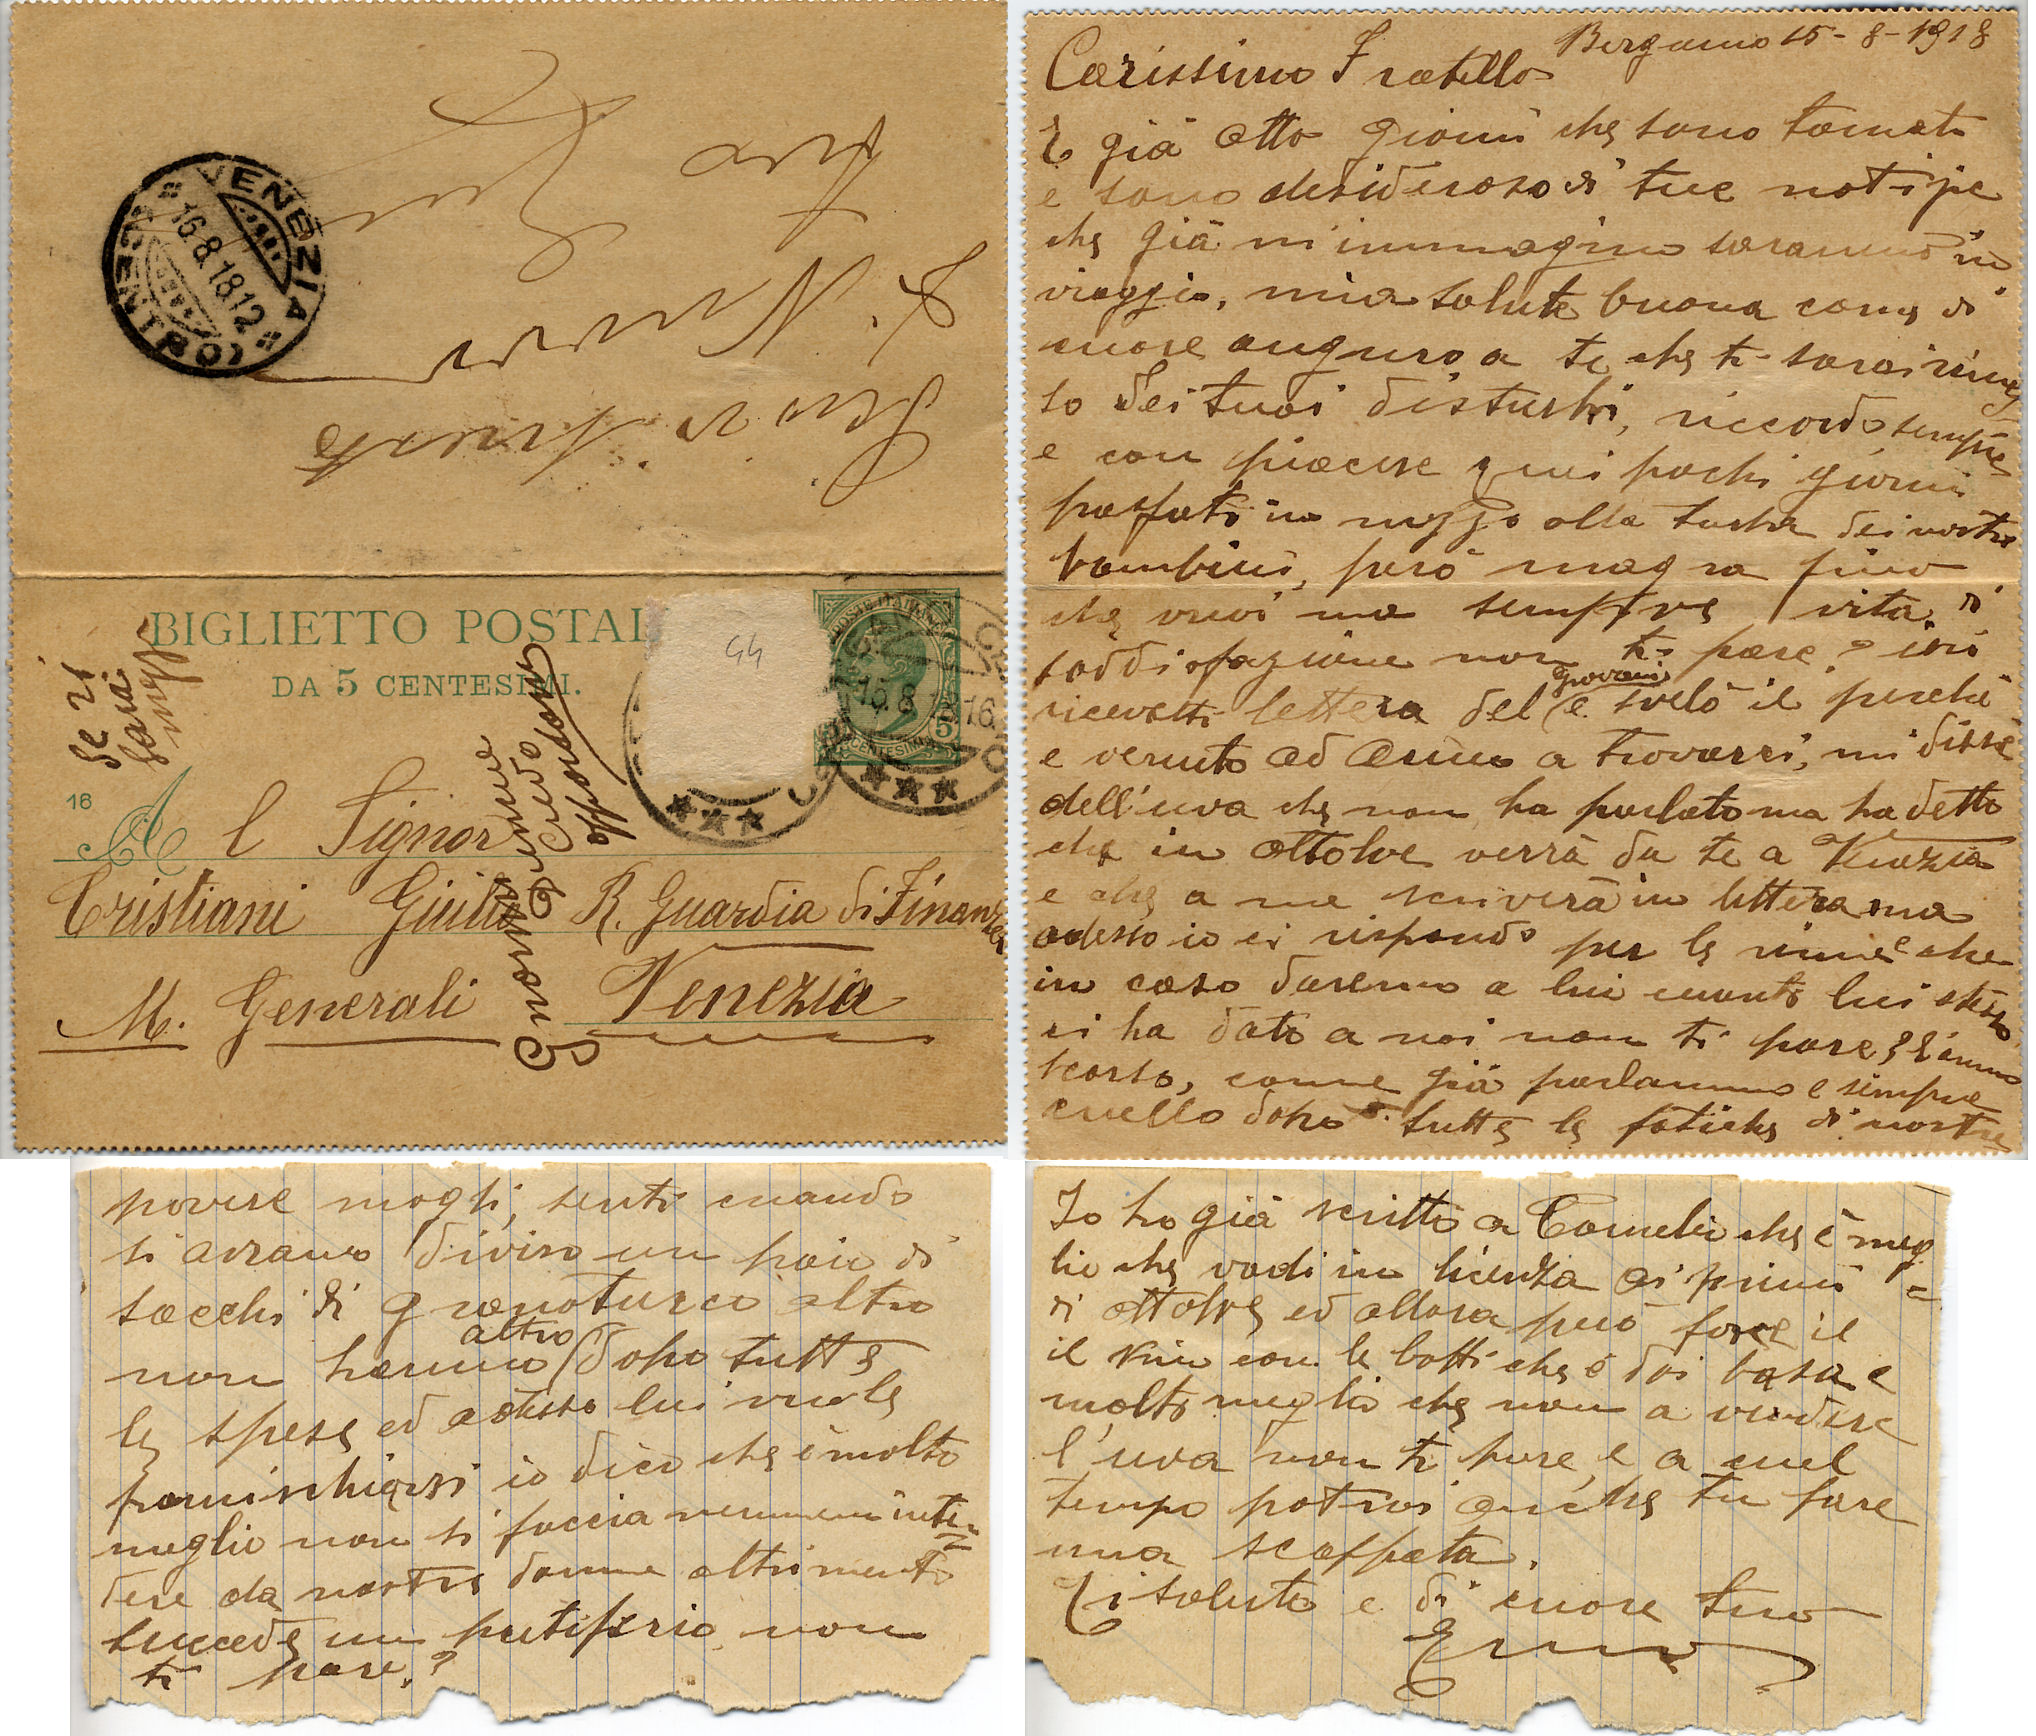 VENEZIA
16.8.18 12
(CENTRO)
BIGLIETTO POSTAL
DA 5 CENTESIMI.
44
POSTE ITALIANE
15.8
CENTESIMI 5
Se ti
sarà
16
Al Signor
Cristiani Giulio R. Guardia di Finanza
M. Generali Venezia
Bergamo 15-8-1918
Carissimo Fratello
E già otto giorni che sono tornato
e sono desideroso di tue notizie
che già m'immagino saranno in
viaggio, mia salute buona come di
cuore auguro a te che ti sarai rimes
so dei tuoi disturbi, riccordo sempre
e con piacere quei pochi giorni
passati in mezzo alla turba dei nostri
bambini, però magra fino
che vuoi ma sempre vita di
soddisfazione non ti pare? ieri
ricevetti lettera del giovani e svelò il perchè
e venuto ad a trovarci, mi disse
dell'uva che non ha parlato ma ha detto
che in ottobre verrà da te a Venezia
e che a me scriverà in lettera ma
adesso io ci rispondo per le rime e che
in caso daremo a lui cuanto lui stesso
ci ha dato a noi non ti pare? l'anno
scorso, come già parlammo e sempre
cuello dopo tutte le fatiche di nostre
povere mogli, senti cuando
si avranno diviso un paio di
sacchi di granoturco altro
non hanno altro dopo tutte
le spese ed adesso lui vuole
framischiarsi io dico che è molto
meglio non si faccia nemmeno inten=
dere da nostre donne altrimenti
succede un putiferio non
ti pare?
Io ho già scritto a Cornelio che è meg=
lio che vadi in licenza ai primi
di ottobre ed allora può fare il
il vino con le botti che è doi basa e
molto meglio che non a vendere
l'uva non ti pare, e a cuel
tempo potrai anche tu fare
una scappata.
Ti saluto e di cuore tuo